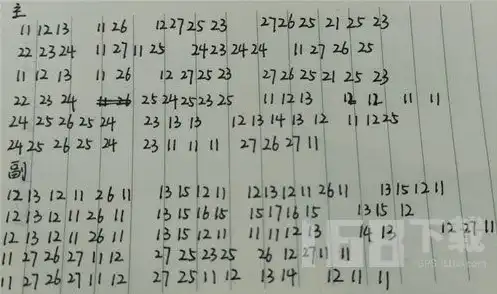 主
11 12 13 11 26 12 27 25 23 27 26 25 21 25 23
22 23 24 11 27 11 25 24 23 24 24 11 27 26 25
11 12 13 11 26 12 27 25 23 27 26 25 21 25 23
22 23 24 25 24 25 23 25 11 12 13 12 12 11 11
24 25 26 25 24 23 13 13 12 13 14 13 12 11 12 25
24 25 26 25 24 23 11 11 11 27 26 27 11
副
12 13 12 11 26 11 13 15 12 11 12 13 12 11 26 11 13 15 12 11
12 13 12 11 26 11 13 15 16 15 15 17 16 15 13 15 12
12 13 12 11 26 11 13 15 12 11 11 11 12 13 14 13 12 27 11
11 27 26 27 11 12 27 25 23 25 26 12 27 11 11
11 27 26 27 11 12 27 25 11 12 13 14 12 11 11
168下载